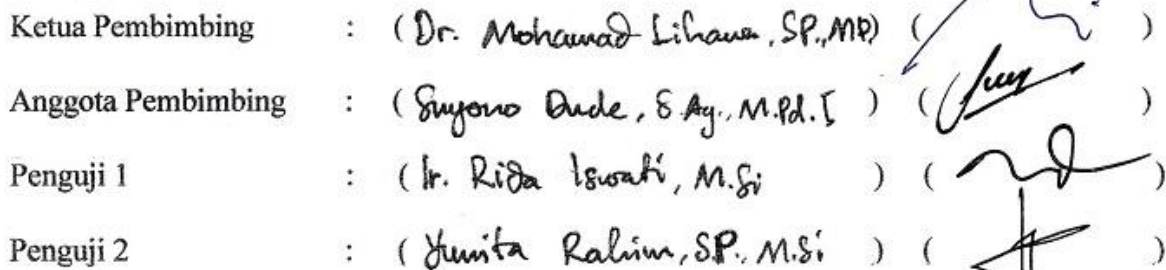 Ketua Pembimbing : (Dr. Mohamad Lihawa, SP., MP) ( )
Anggota Pembimbing : (Suyono Dude, S.Ag., M.Pd.I ) ( )
Penguji 1 : (Ir. Rida Iswati, M.Si ) ( )
Penguji 2 : ( Yunita Rahim, SP., M.Si ) ( )